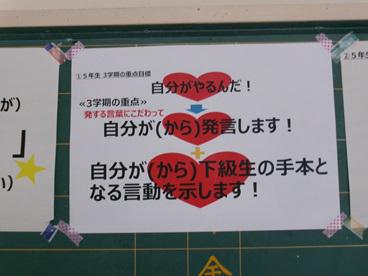 ①5年生 3学期の重点目標
自分がやるんだ！
≪3学期の重点≫
発する言葉にこだわって
自分が(から)発言します！
+
自分が(から)下級生の手本と
なる言動を示します！
が)
」
い)
②5年生
金